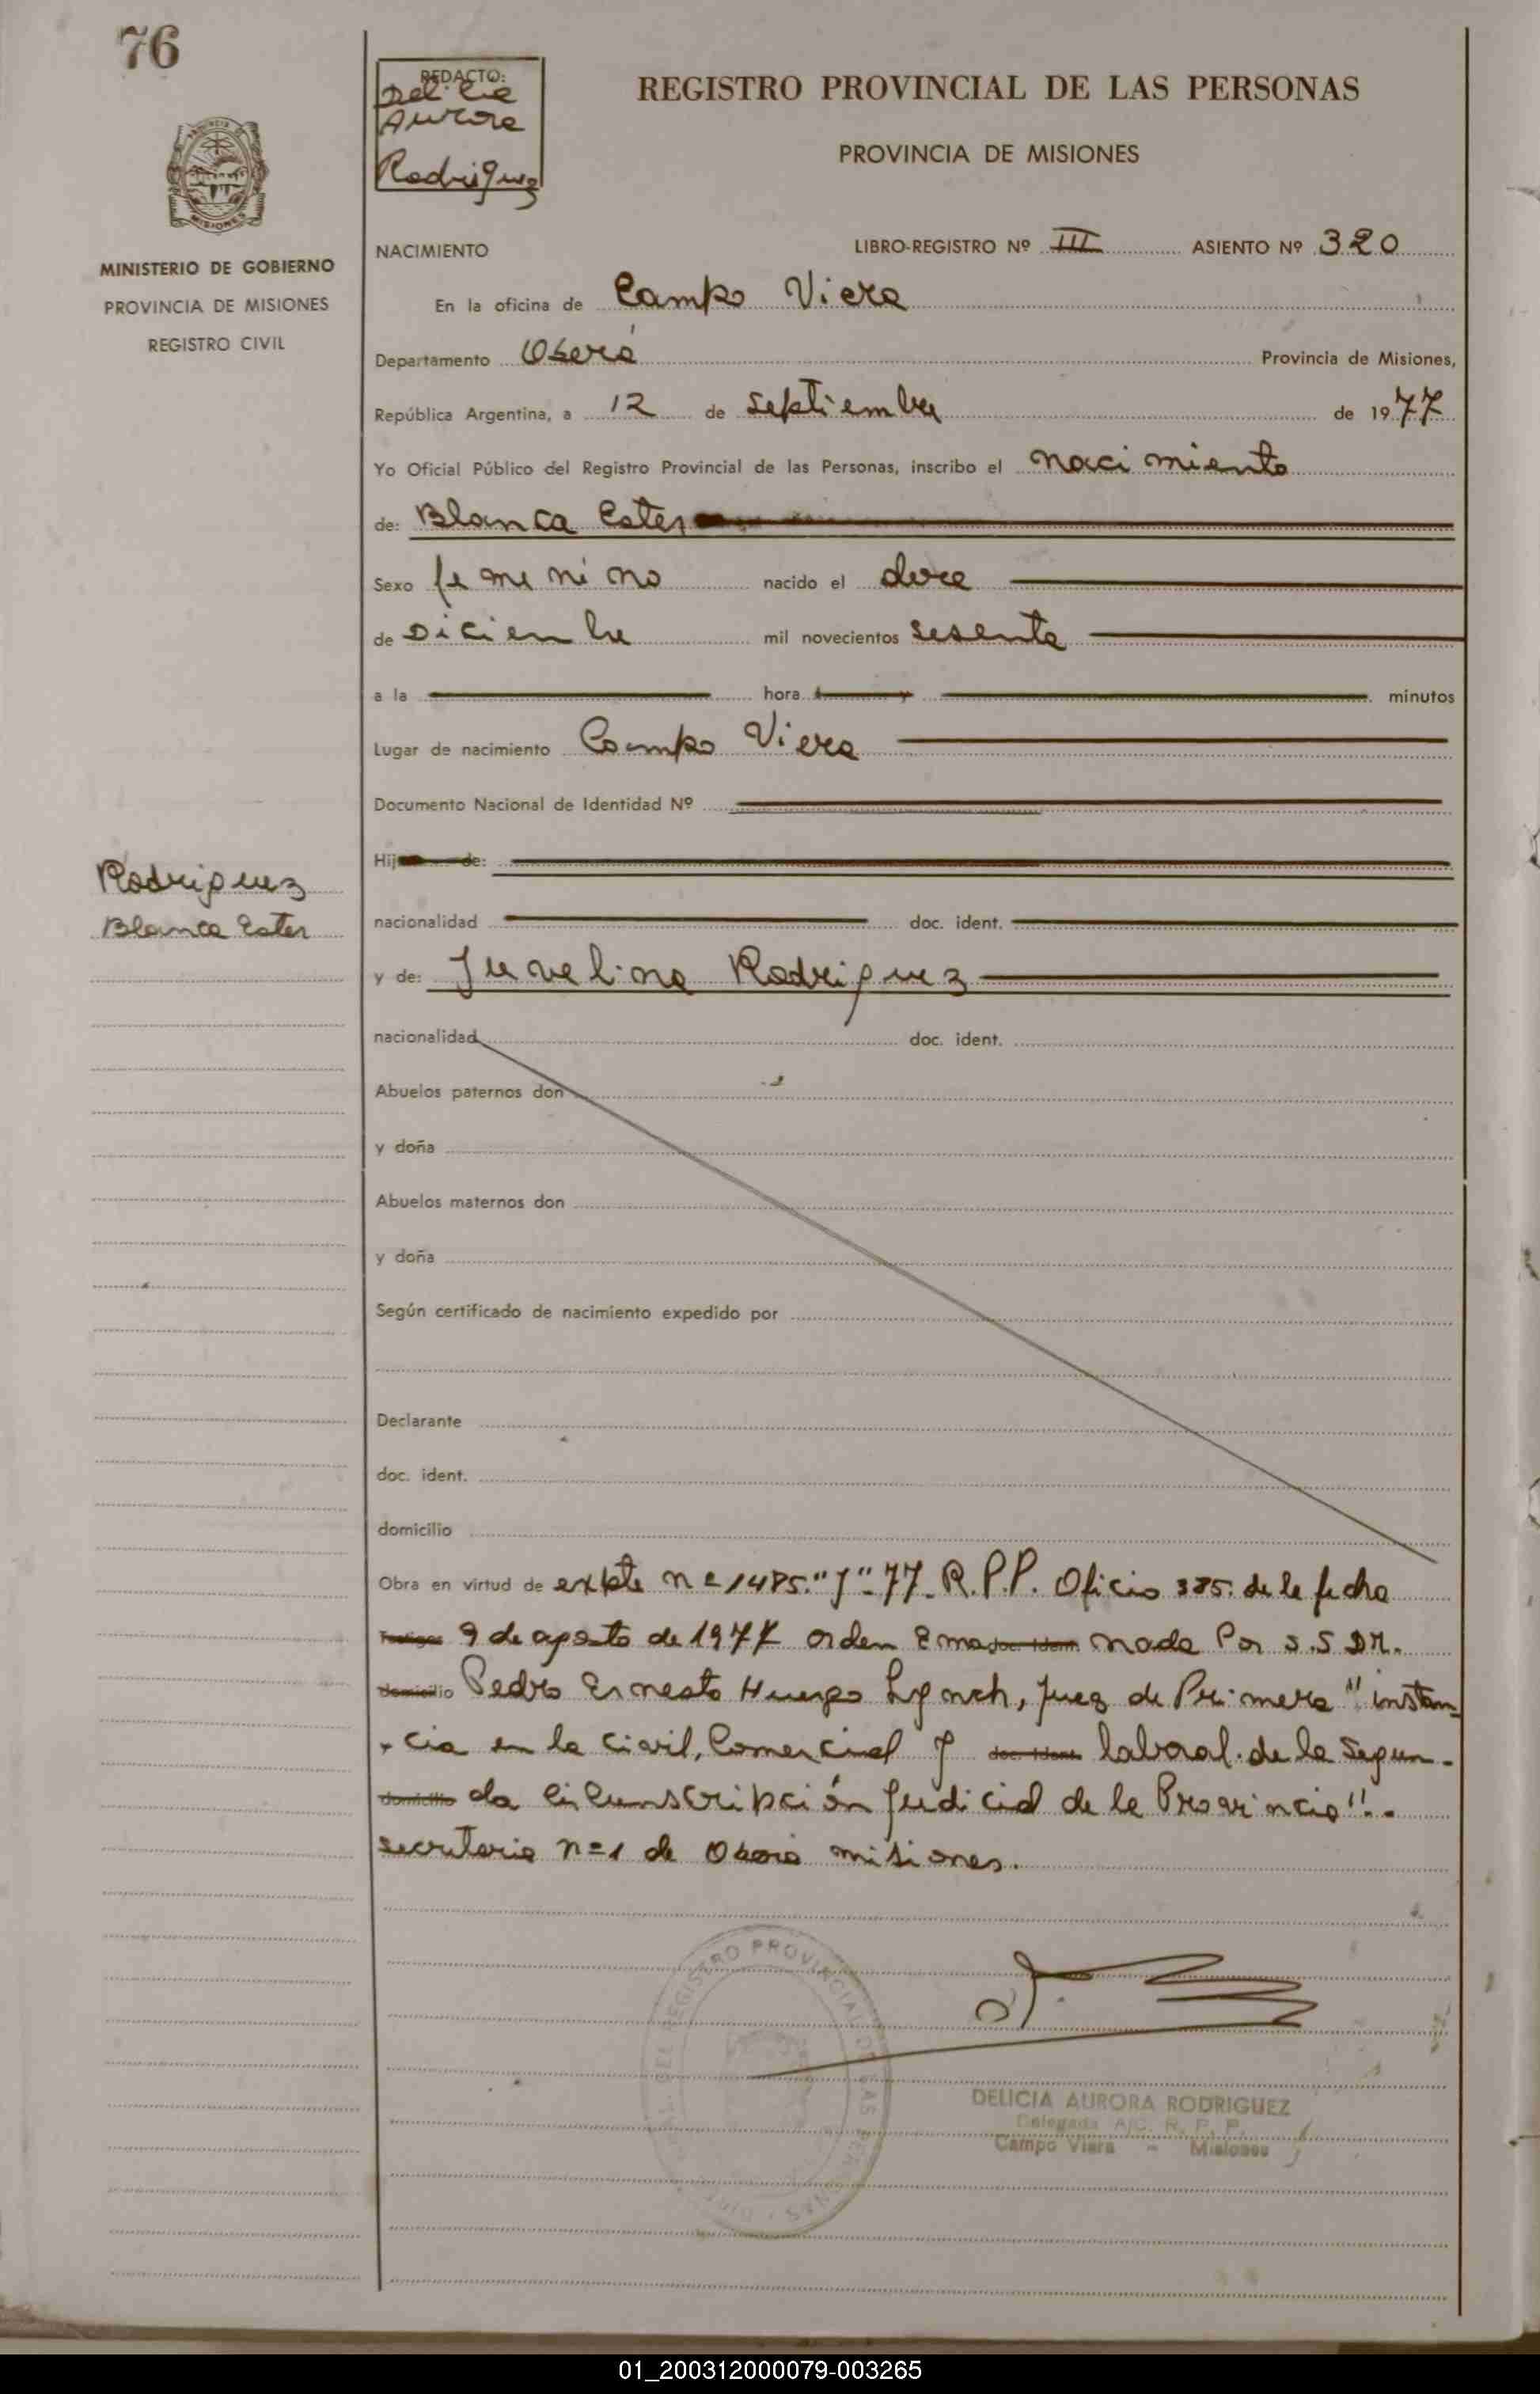 76
REDACTO:
Delicia
Aurora
Rodriguez
REGISTRO PROVINCIAL DE LAS PERSONAS
PROVINCIA DE MISIONES
MISIONES
MINISTERIO DE GOBIERNO
PROVINCIA DE MISIONES
REGISTRO CIVIL
NACIMIENTO LIBRO-REGISTRO Nº III ASIENTO Nº 320
En la oficina de Campo Viera
Departamento Oberá Provincia de Misiones,
República Argentina, a 12 de septiembre de 1977
Yo Oficial Público del Registro Provincial de las Personas, inscribo el nacimiento
de: Blanca Ester
Sexo femenino nacido el doce
de Diciembre mil novecientos sesenta
a la hora y minutos
Lugar de nacimiento Campo Viera
Documento Nacional de Identidad Nº
Hij de:
Rodriguez
Blanca Ester
nacionalidad doc. ident.
y de: Juvelina Rodriguez
nacionalidad doc. ident.
Abuelos paternos don
y doña
Abuelos maternos don
y doña
Según certificado de nacimiento expedido por
Declarante
doc. ident.
domicilio
Obra en virtud de expte nº 1485."J"-77- R.P.P. Oficio 385. de la fecha
Testigos 9 de agosto de 1977 orden Ema doc. ident. nada Por S.S DR.
domicilio Pedro Ernesto Huergo Lynch, juez de Primera "instan-
cia en la Civil, Comercial y doc. ident. laboral. de la Segun-
domicilio da Circunscripción Judicial de la Provincia".
secretaria nº1 de Oberá misiones.
REGISTRO PROVINCIAL DE LAS PERSONAS
DELICIA AURORA RODRIGUEZ
Delegada A/C. R. P. P.
Campo Viera - Misiones
01_200312000079-003265